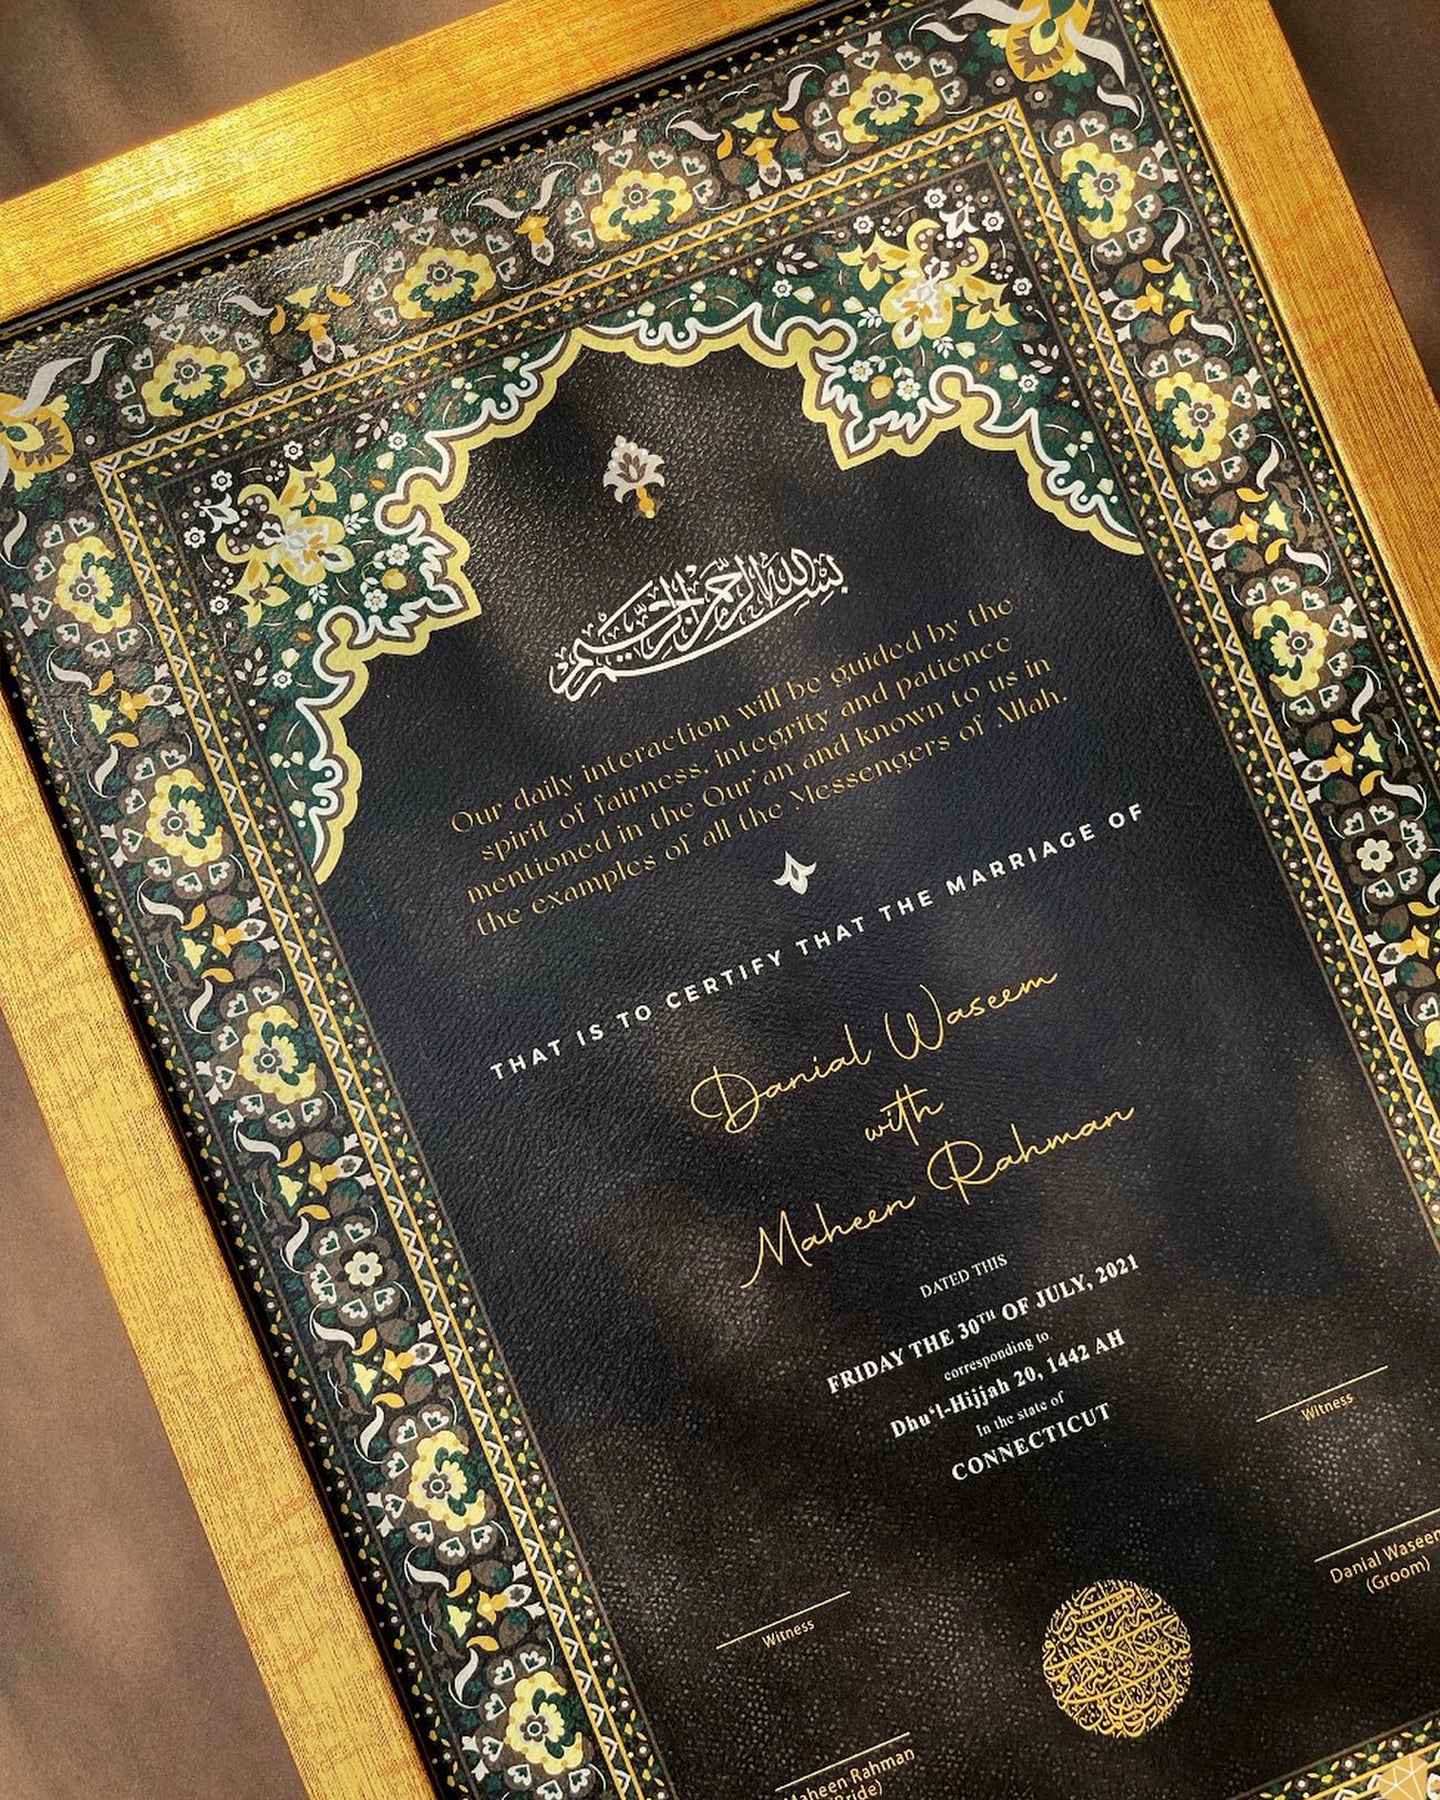 بسم الله الرحمن الرحيم
Our daily interaction will be guided by the
spirit of fairness, integrity and patience
mentioned in the Qur'an and known to us in
the examples of all the Messengers of Allah.
THAT IS TO CERTIFY THAT THE MARRIAGE OF
Danial Waseem
with
Maheen Rahman
DATED THIS
FRIDAY THE 30TH OF JULY, 2021
corresponding to
Dhu'l-Hijjah 20, 1442 AH
In the state of
CONNECTICUT
Witness
Witness
Danial Waseem
(Groom)
Maheen Rahman
(Bride)